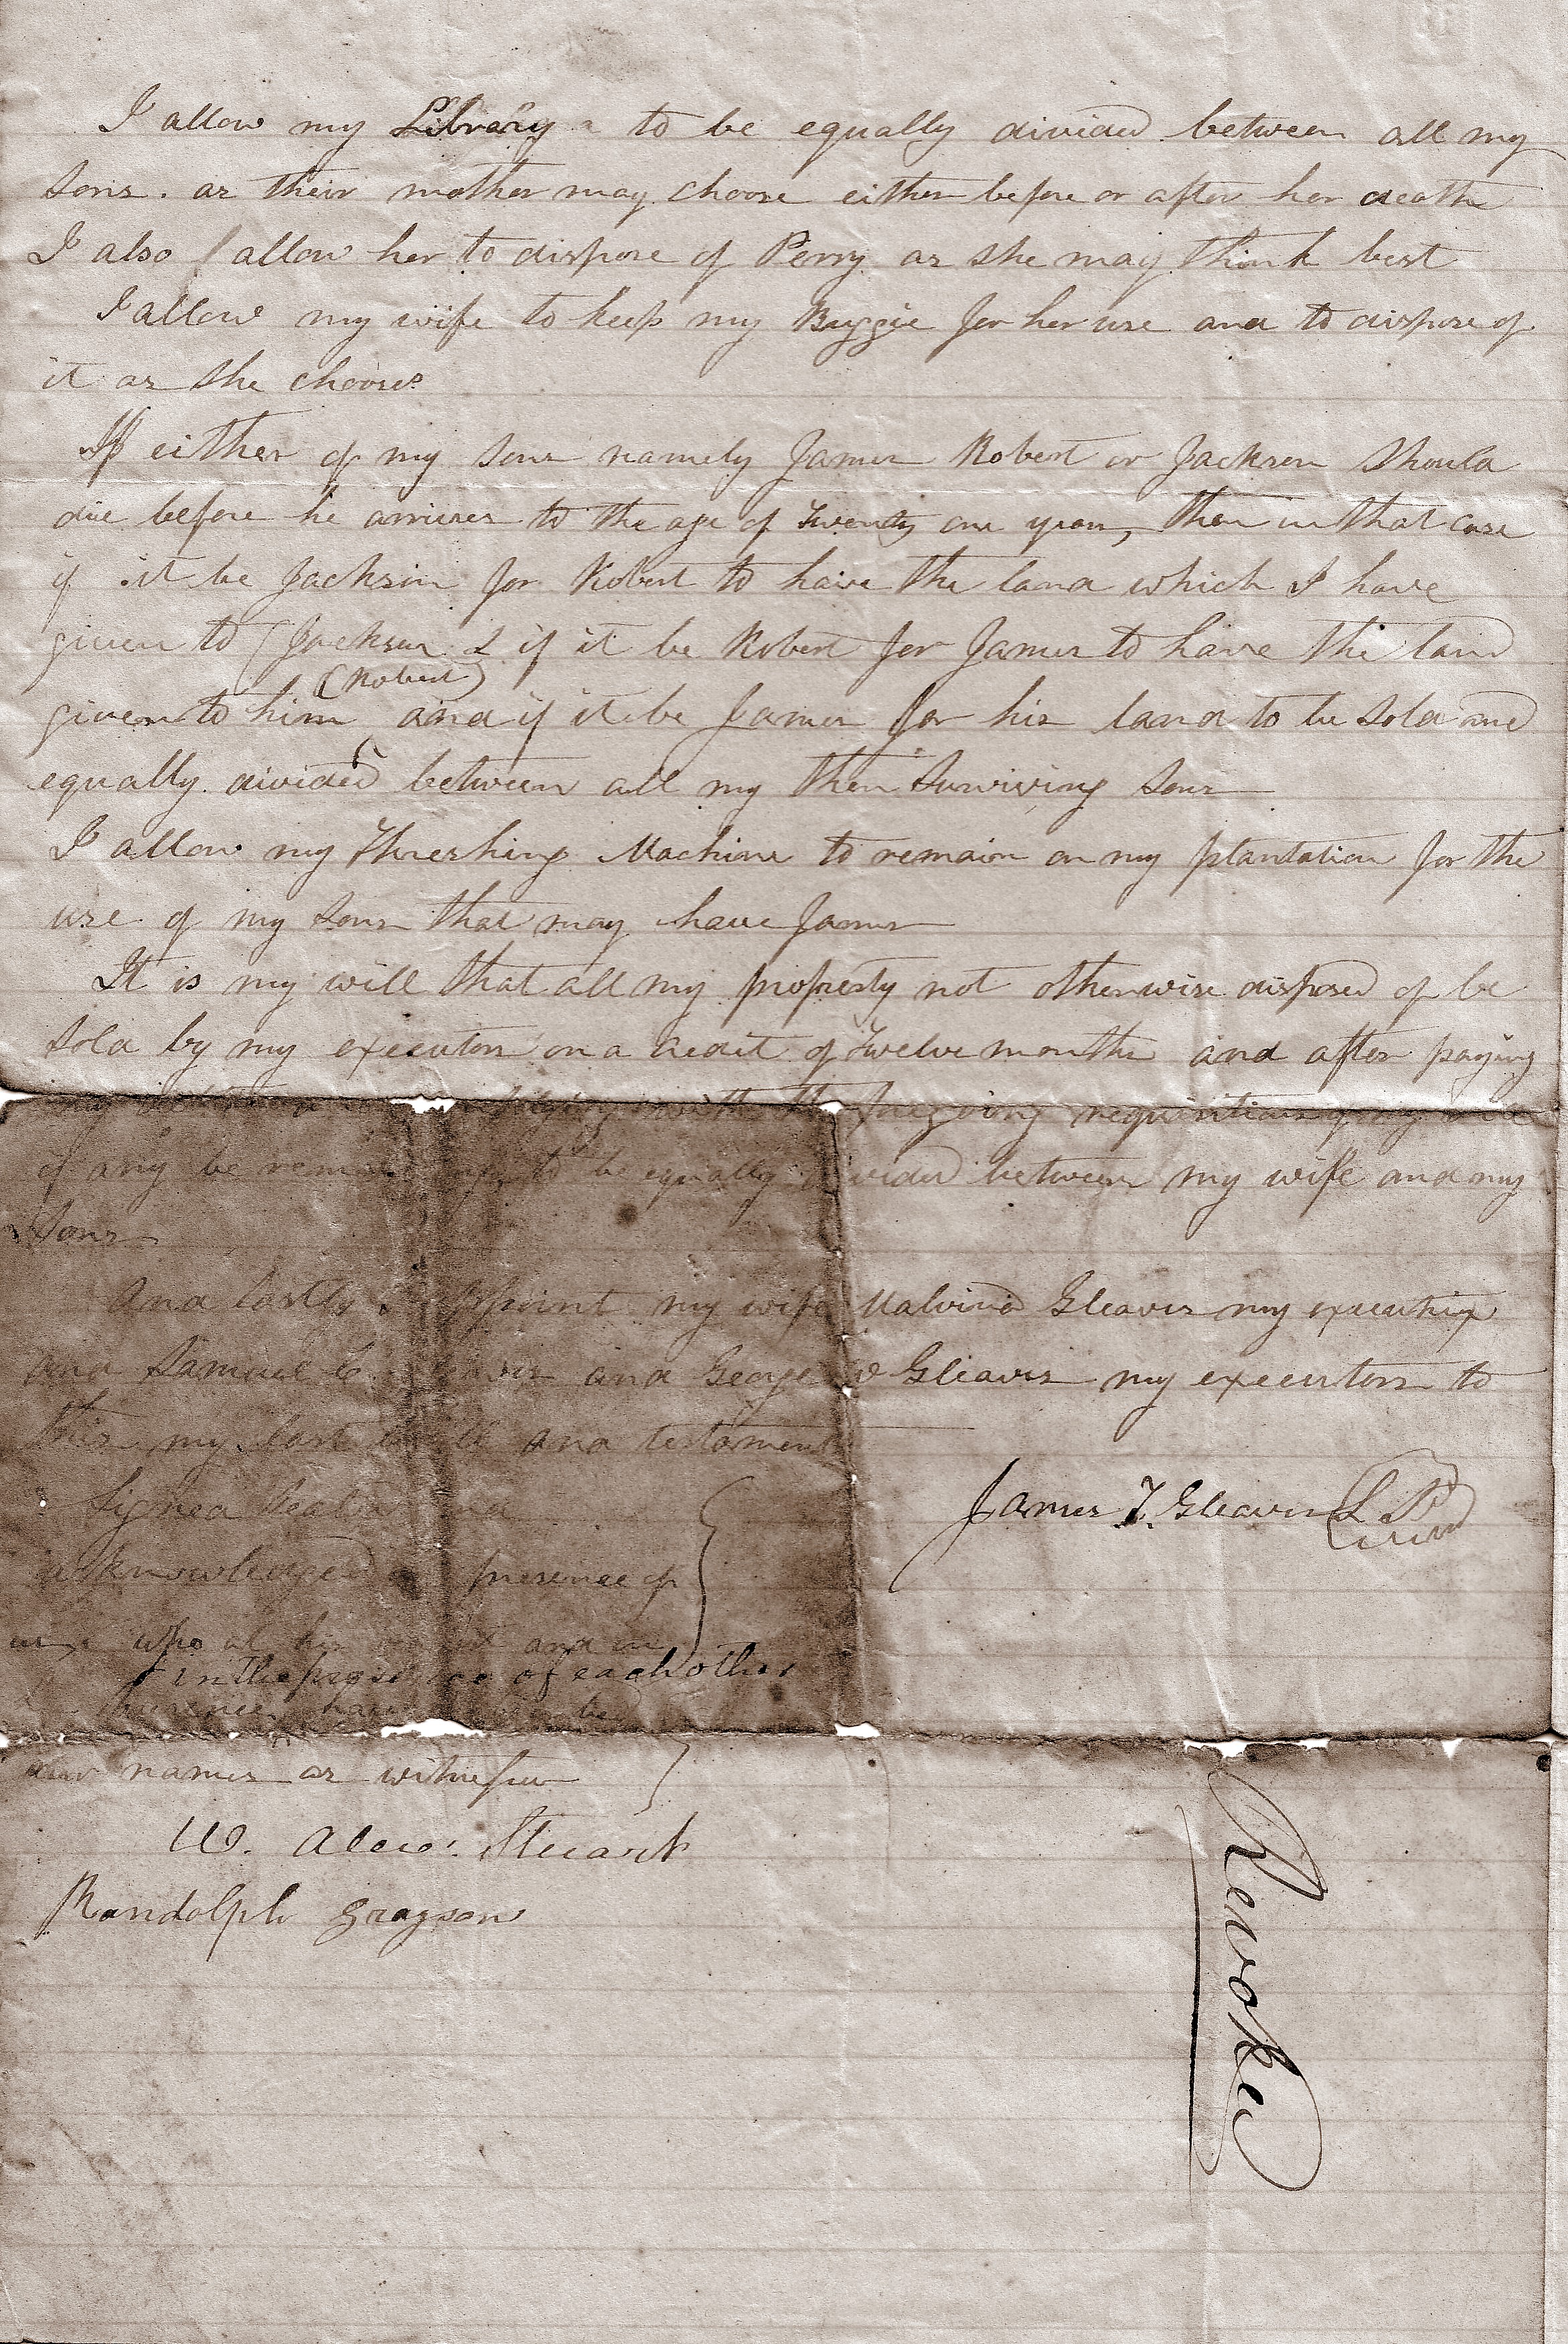 I allow my Library to be equally divided between all my
sons. as their mother may choose either before or after her death
I also allow her to dispose of Perry as she may think best
I allow my wife to keep my Buggie for her use and to dispose of
it as she chooses
If either of my sons namely James Robert or Jackson should
die before he arrives to the age of twenty one years, then in that case
if it be Jackson for Robert to have the land which I have
given to (Jackson & if it be Robert for James to have the land
(Robert)
given to him and if it be James for his land to be sold and
equally divided between all my then surviving sons
I allow my Threshing Machine to remain on my plantation for the
use of my sons that may have farms
It is my will that all my property not otherwise disposed of be
sold by my executors on a credit of twelve months and after paying
my with the foregoing requisitions of my
if any be to be equally divided between my wife and my
sons
And lastly I appoint my wife Malvina Gleaves my executrix
and Samuel C. and George W Gleaves my executors to
this my last will and testament
James T. Gleaves L S
Signed Sealed and
acknowledged in presence of
us, who at his request and in
& in the presence of each other
presence have
our names as witnesses
W. Alexr. Stuart
Randolph Grayson
Revoked